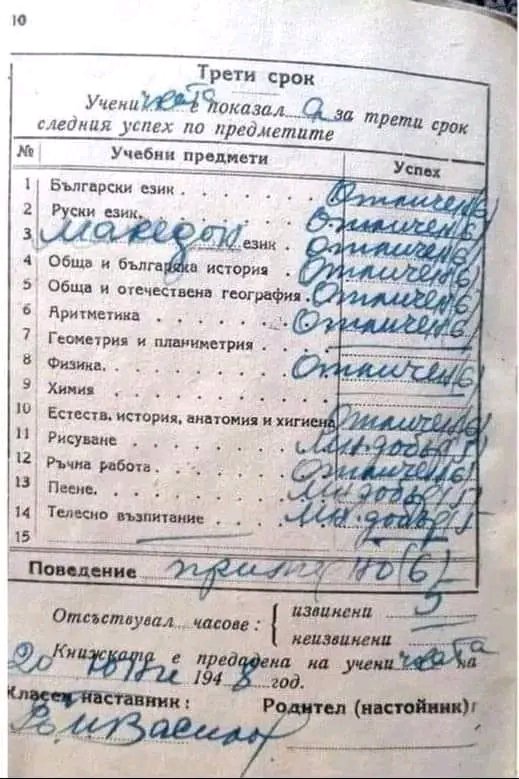 10
Трети срок
Ученичката е показал а за трети срок
следния успех по предметите
№ Учебни предмети Успех
1 Български език . Отличен (6)
2 Руски език. Отличен (6)
3 Македон език . Отличен (6)
4 Обща и българска история . Отличен (6)
5 Обща и отечествена география . Отличен (6)
6 Аритметика Отличен (6)
7 Геометрия и планиметрия . . .
8 Физика. Отличен (6)
9 Химия
10 Естеств. история, анатомия и хигиена Отличен (6)
11 Рисуване Мн. добър (5)
12 Ръчна работа. Отличен (6)
13 Пеене. Мн. добър (5)
14 Телесно възпитание . . . . Мн. добър (5)
15
Поведение примерно (6)
Отсъствувал часове: { извинени 5
неизвинени
Книжката е предадена на ученичката на
20 юни 1948 год.
Класен наставник: Родител (настойник):